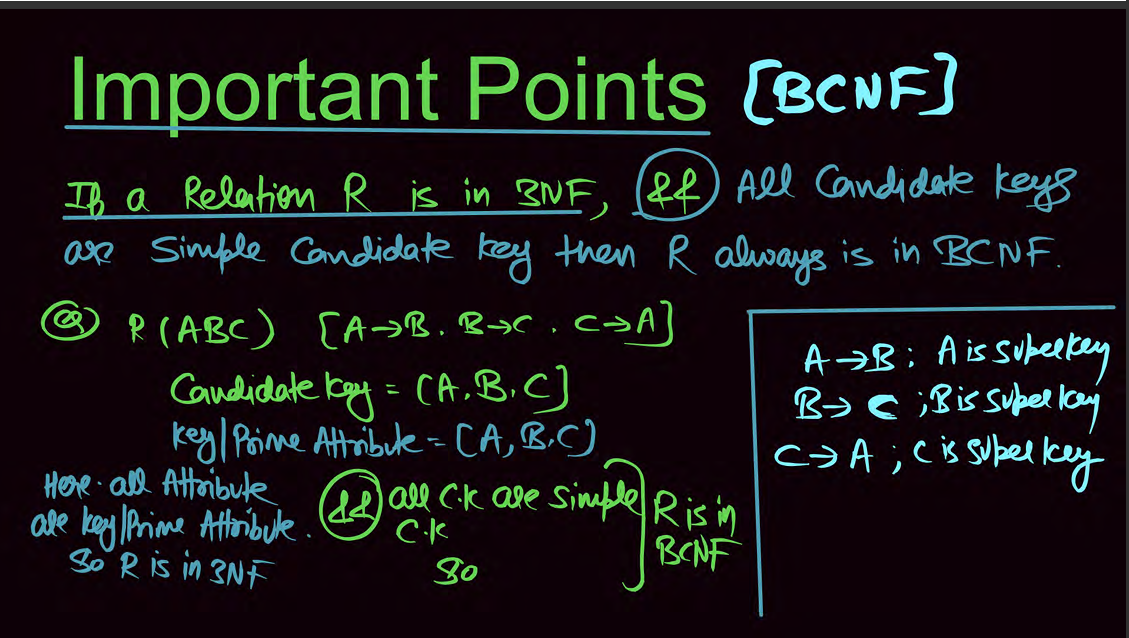 Important Points [BCNF]
If a Relation R is in 3NF, && All Candidate Keys
are Simple Candidate key then R always is in BCNF.
Q R (ABC) [A→B. B→C. C→A]
Candidate key = [A, B, C]
key/Prime Attribute = [A, B, C]
Here all Attribute
are key/Prime Attribute.
So R is in 3NF
&& all C.K are Simple
C.K
So
R is in
BCNF
A→B ; A is Super key
B→ C ; B is Super key
C→ A ; C is Super key